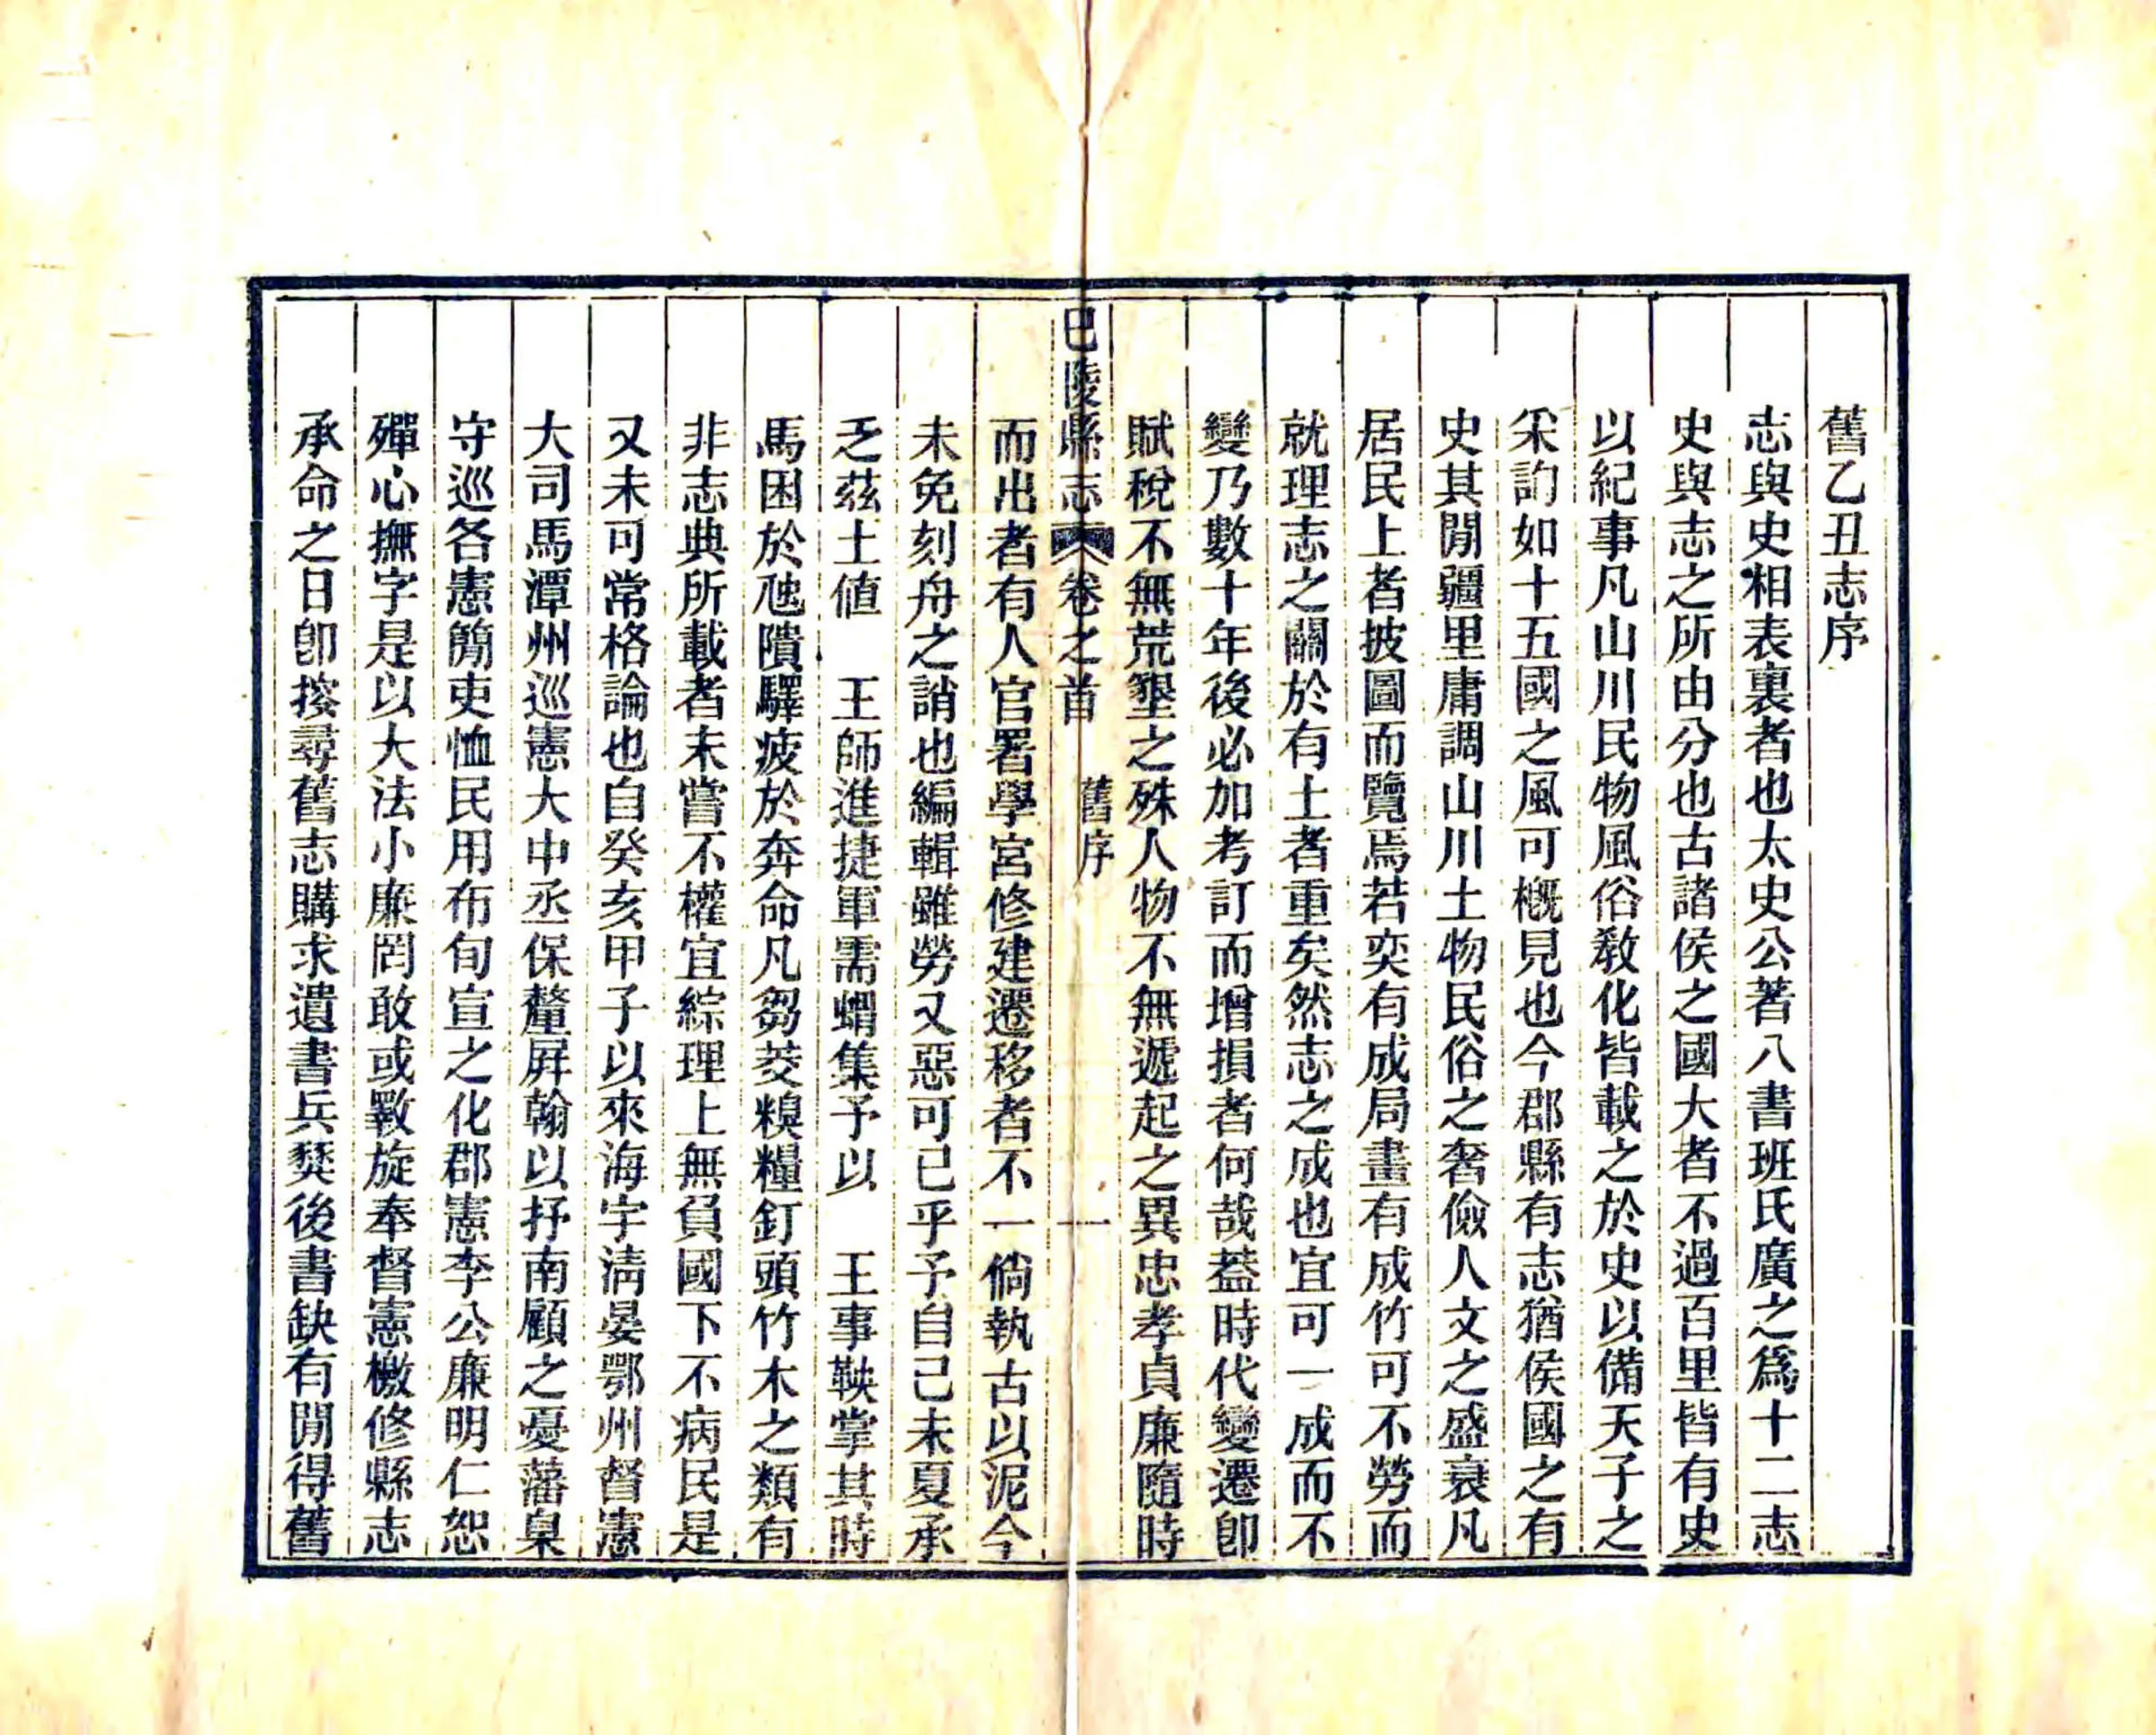 舊乙丑志序
志與史相表裏者也太史公著八書班氏廣之爲十二志
史與志之所由分也古諸侯之國大者不過百里皆有史
以紀事凡山川民物風俗敎化皆載之於史以備天子之
采訽如十五國之風可槪見也今郡縣有志猶侯國之有
史其閒疆里庸調山川土物民俗之奢儉人文之盛衰凡
居民上者披圖而覽焉若奕有成局畫有成竹可不勞而
就理志之關於有土者重矣然志之成也宜可一成而不
變乃數十年後必加考訂而增損者何哉葢時代變遷卽
賦稅不無荒墾之殊人物不無遞起之異忠孝貞廉隨時
巴陵縣志 卷之首 舊序 一
而出者有人官署學宮修建遷移者不一倘執古以泥今
未免刻舟之誚也編輯雖勞又惡可已乎予自己未夏承
乏茲土値 王師進捷軍需蝟集予以 王事鞅掌其時
馬困於虺隤驛疲於奔命凡芻茭糗糧釘頭竹木之類有
非志典所載者未嘗不權宜綜理上無負國下不病民是
又未可常格論也自癸亥甲子以來海宇淸晏鄂州督憲
大司馬潭州巡憲大中丞保釐屛翰以抒南顧之憂藩臬
守巡各憲簡吏恤民用布旬宣之化郡憲李公廉明仁恕
殫心撫字是以大法小廉罔敢或斁旋奉督憲檄修縣志
承命之日卽搲尋舊志購求遺書兵燹後書缺有閒得舊